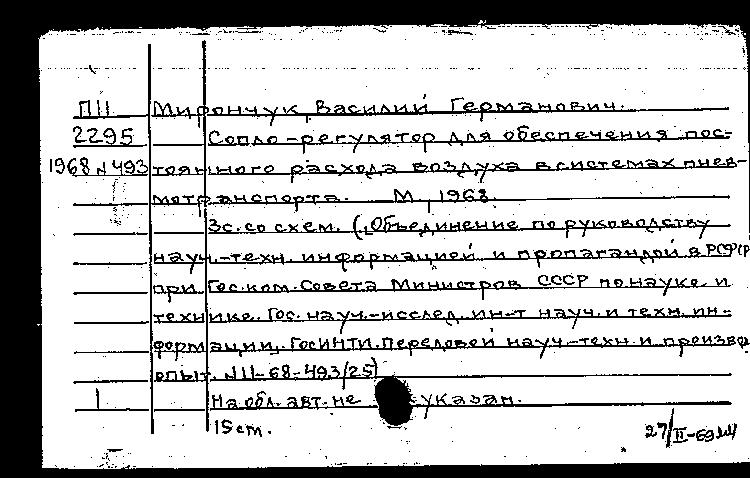 П11 Мирончук, Василий Германович.
2295 Сопло-регулятор для обеспечения пос-
1968 N 493 тоянного расхода воздуха в системах пнев-
мотранспорта. М., 1968.
3с. со схем. („Объединение по руководству
науч.-техн. информацией и пропагандой в РСФСР
при Гос. ком. Совета Министров СССР по науке и
технике. Гос. науч.-исслед. ин-т науч. и техн. ин-
формации. ГОСИНТИ. Передовой науч.-техн. и произво
опыт. N 11-68-493/25)
1 На обл. авт. не указан.
15 cm.
27/II-69